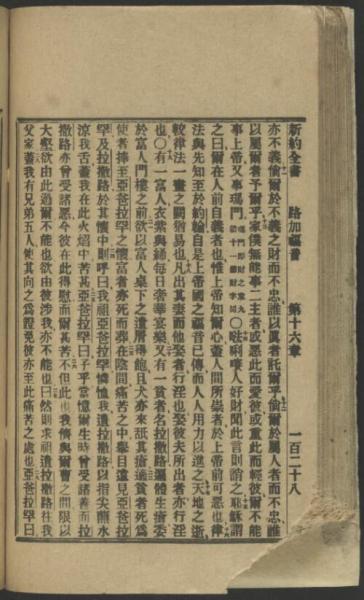 新約全書　路加福音　第十六章　一百二十八
亦不義倘爾於不義之財而不忠誰以眞者託爾乎倘爾於屬人者而不忠誰
以屬爾者予爾乎家僕無能事二主者或惡此而愛彼或重此而輕彼爾不能
事上帝又事瑪門○𠵽唎㘔人好財聞此言則誚之耶穌謂
之曰爾在人前自義者也惟上帝知爾心蓋人間所崇者於上帝前可惡也律
法與先知至於約翰自是上帝國之福音已傳而人人用力以進之天地之逝
較律法一畫之闕猶易也凡出其妻而他娶者行淫也娶彼夫所出者亦行淫
也○有一富人衣紫與綘每日奢華宴樂又有一貧者名拉撒路徧體生瘡委
於富人門樓之前欲以富人桌下之遺屑得飽且犬亦來舐其瘡適貧者死爲
使者捧至亞爸拉罕之懷富者亦死而葬在陰間痛苦之中舉目遠見亞爸拉
罕及拉撒路於其懷中則呼曰我祖亞爸拉罕憐恤我遣拉撒路以指尖蘸水
涼我舌蓋我在此火焰中苦甚亞爸拉罕曰子乎當憶爾生時曾受諸善而拉
撒路亦曾受諸惡今彼在此得慰而爾甚苦不但此也我儕與爾曹之間限以
大壑欲由此過爾不能也欲由彼涉我亦不能也曰然則求祖遣拉撒路往我
父家蓋我有兄弟五人使其向之爲證免彼亦至此痛苦之處也亞爸拉罕曰